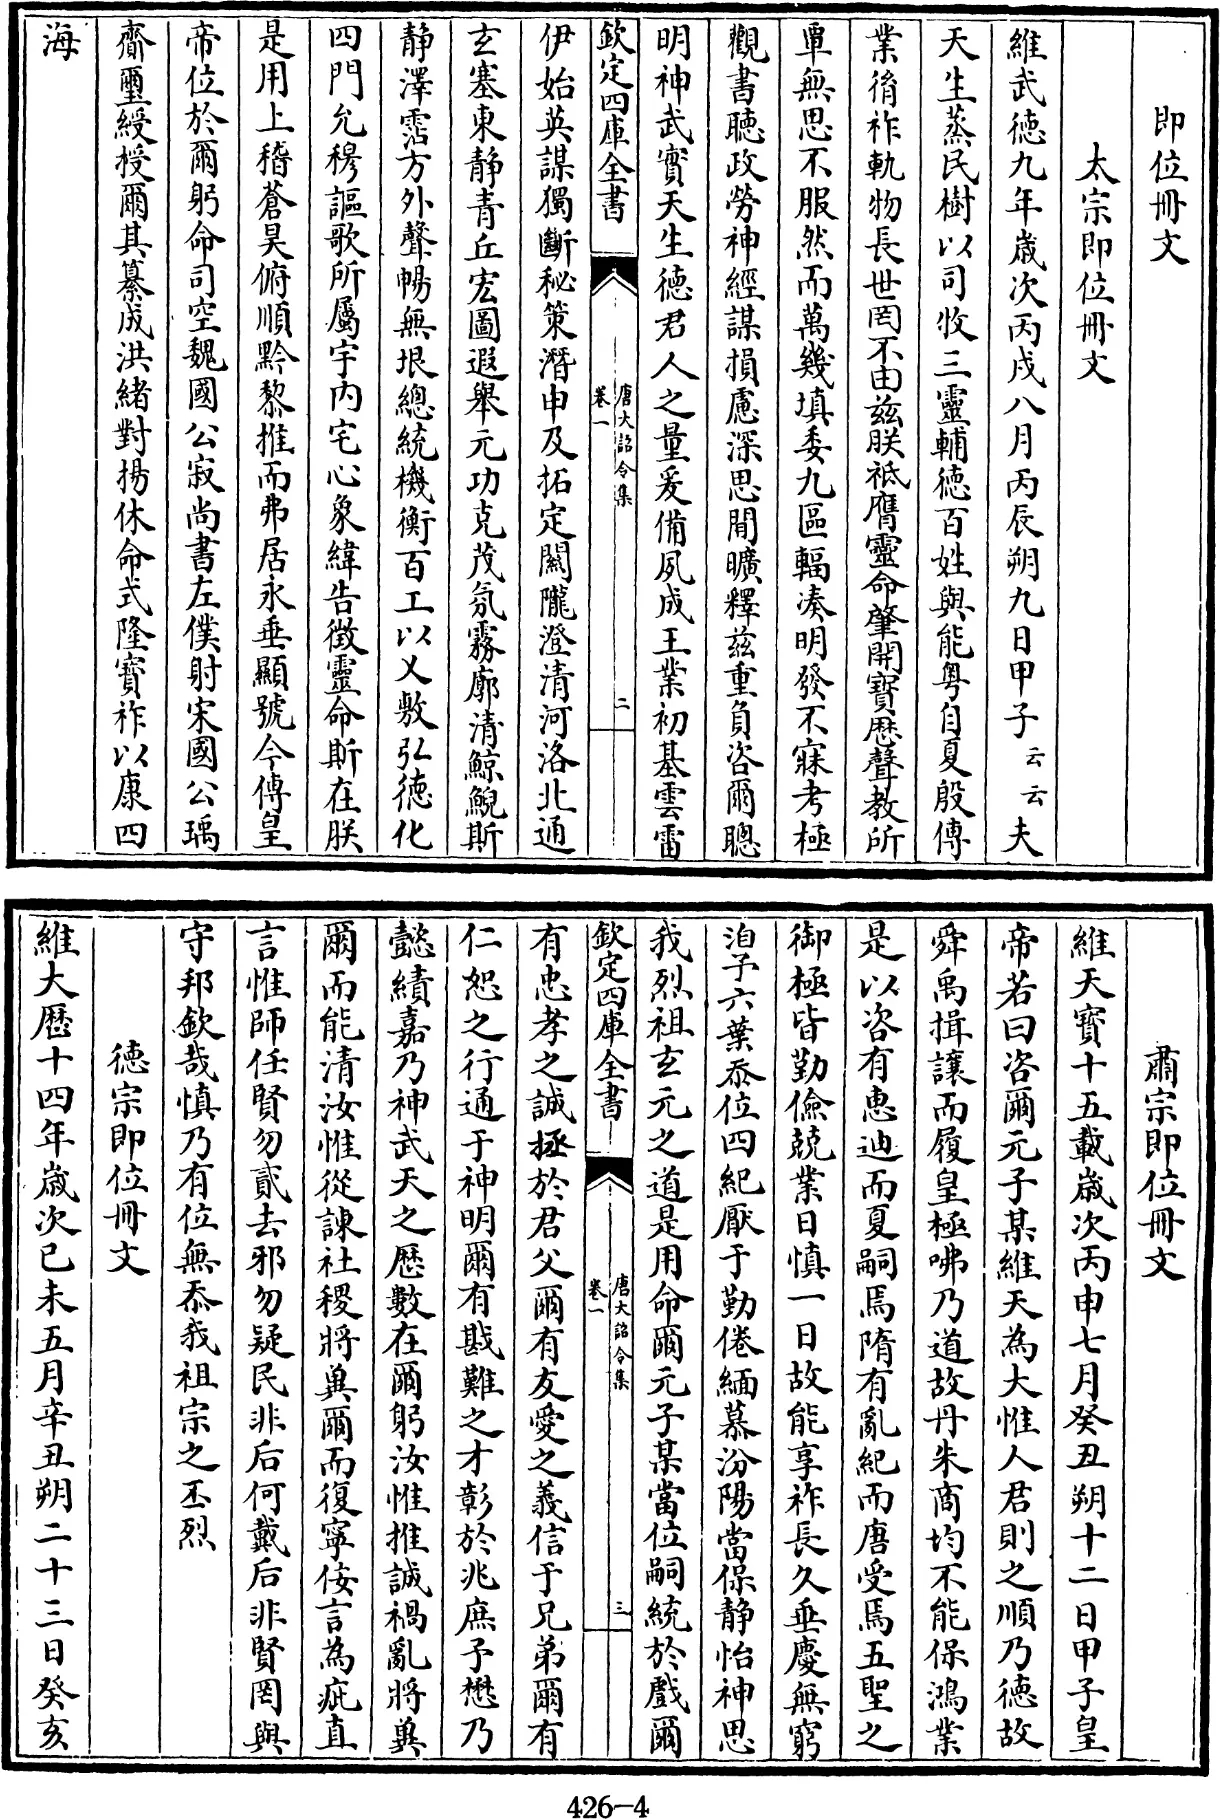 即位冊文
太宗即位冊文
維武徳九年歳次丙戌八月丙辰朔九日甲子云云夫
天生蒸民樹以司牧三靈輔徳百姓與能粤自夏殷傳
業脩祚軌物長世罔不由兹朕祗膺靈命肇開寳厯聲教所
覃無思不服然而萬幾填委九區輻凑明發不寐考極
觀書聽政勞神經謀損慮深思閒曠釋兹重負咨爾聰
明神武實天生徳君人之量爰備夙成王業初基雲雷
欽定四庫全書
唐大詔令集
卷一
二
伊始英謀獨斷秘策潛申及拓定關隴澄清河洛北通
玄塞東静青丘宏圖遐舉元功克茂氛霧廓清鯨鯢斯
静澤霑方外聲暢無垠總統機衡百工以乂敷弘徳化
四門允穆謳歌所屬宇内宅心象緯告徴靈命斯在朕
是用上稽蒼昊俯順黔黎推而弗居永垂顯號今傳皇
帝位於爾躬命司空魏國公寂尚書左僕射宋國公瑀
齎璽綬授爾其纂成洪緒對揚休命式隆寳祚以康四
海
肅宗即位冊文
維天寳十五載歳次丙申七月癸丑朔十二日甲子皇
帝若曰咨爾元子某維天為大惟人君則之順乃徳故
舜禹揖讓而履皇極咈乃道故丹朱商均不能保鴻業
是以咨有恵迪而夏嗣焉隋有亂紀而唐受焉五聖之
御極皆勤儉兢業日慎一日故能享祚長久垂慶無窮
洎予六葉忝位四紀厭于勤倦緬慕汾陽當保静怡神思
我烈祖玄元之道是用命爾元子某當位嗣統於戲爾
欽定四庫全書
唐大詔令集
卷一
三
有忠孝之誠極於君父爾有友愛之義信于兄弟爾有
仁恕之行通于神明爾有戡難之才彰於兆庶予懋乃
懿績嘉乃神武天之厯數在爾躬汝惟推誠禍亂將冀
爾而能清汝惟從諫社稷將冀爾而復寧佞言為疵直
言惟師任賢勿貳去邪勿疑民非后何戴后非賢罔與
守邦欽哉慎乃有位無忝我祖宗之丕烈
徳宗即位冊文
維大厯十四年歳次己未五月辛丑朔二十三日癸亥
426-4